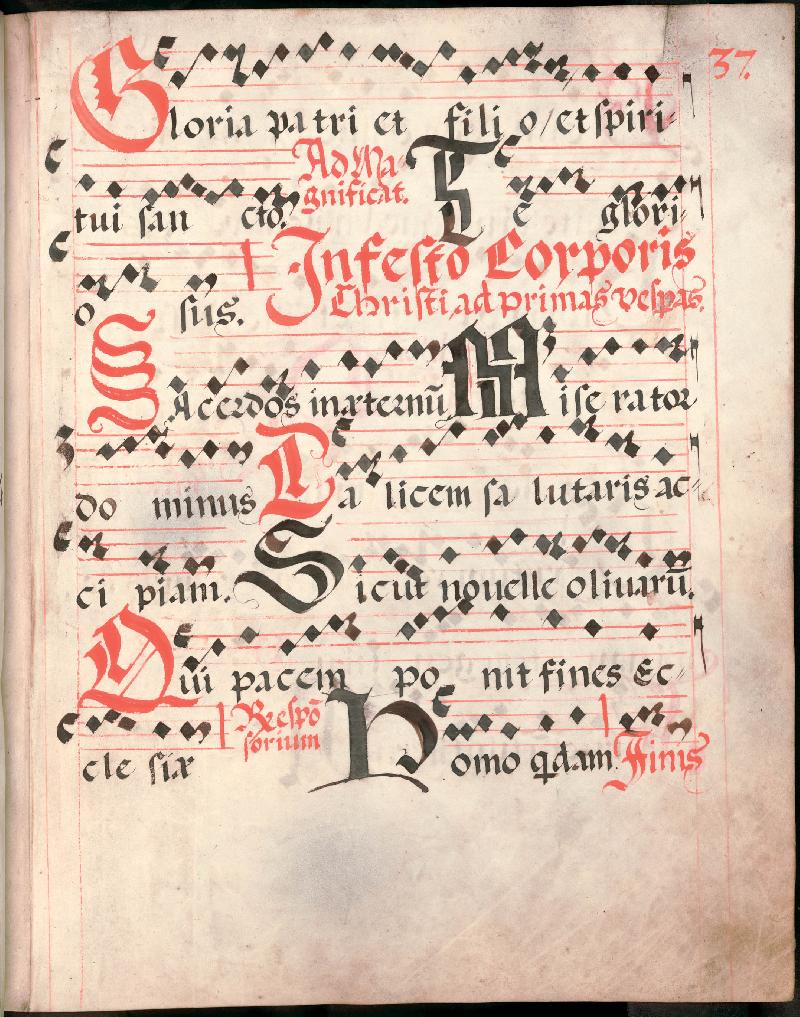 37.
Gloria patri et filio/et spiri-
tui sancto. Ad Magnificat. Te glori-
osus. In festo Corporis
Christi, ad primas vespas.
Sacerdos in æternū Miserator
dominus Calicem salutaris ac-
cipiam. Sicut nouelle oliuarū.
Qui pacem ponit fines Ec-
clesiæ Respōsorium Homo qdam Finis